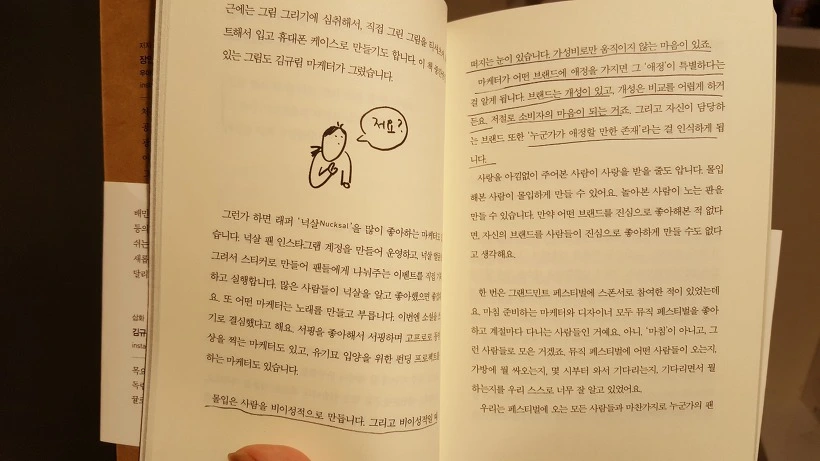 근에는 그림 그리기에 심취해서, 직접 그린 그림을 티셔츠에
트해서 입고 휴대폰 케이스로 만들기도 합니다. 이 책
있는 그림도 김규림 마케터가 그렸습니다.
저요?
그런가 하면 래퍼 '넉살Nucksal'을 많이 좋아하는 마케터도
습니다. 넉살 팬 인스타그램 계정을 만들어 운영하고, 넉살
그려서 스티커로 만들어 팬들에게 나눠주는 이벤트를 직접
하고 실행합니다. 많은 사람들이 넉살을 알고 좋아했으면
요. 또 어떤 마케터는 노래를 만들고 부릅니다. 이번엔 소설을
기로 결심했다고 해요. 서핑을 좋아해서 서핑하며 고프로로
상을 찍는 마케터도 있고, 유기묘 입양을 위한 펀딩 프로젝트를
하는 마케터도 있습니다.
몰입은 사람을 비이성적으로 만듭니다. 그리고 비이성적일
떠지는 눈이 있습니다. 가성비로만 움직이지 않는 마음이 있죠.
마케터가 어떤 브랜드에 애정을 가지면 그 '애정'이 특별하다는
걸 알게 됩니다. 브랜드는 개성이 있고, 개성은 비교를 어렵게 하거
든요. 저절로 소비자의 마음이 되는 거죠. 그리고 자신이 담당하
는 브랜드 또한 '누군가가 애정할 만한 존재'라는 걸 인식하게 됩
니다.
사랑을 아낌없이 주어본 사람이 사랑을 받을 줄도 압니다. 몰입
해본 사람이 몰입하게 만들 수 있어요. 놀아본 사람이 노는 판을
만들 수 있습니다. 만약 어떤 브랜드를 진심으로 좋아해본 적 없다
면, 자신의 브랜드를 사람들이 진심으로 좋아하게 만들 수도 없다
고 생각해요.
한 번은 그랜드민트 페스티벌에 스폰서로 참여한 적이 있었는데
요. 마침 준비하는 마케터와 디자이너 모두 뮤직 페스티벌을 좋아
하고 계절마다 다니는 사람들인 거예요. 아니, '마침'이 아니고, 그
런 사람들로 모은 거겠죠. 뮤직 페스티벌에 어떤 사람들이 오는지,
가방에 뭘 싸오는지, 몇 시부터 와서 기다리는지, 기다리면서 뭘
하는지를 우리 스스로 너무 잘 알고 있었어요.
우리는 페스티벌에 오는 모든 사람들과 마찬가지로 누군가의 팬